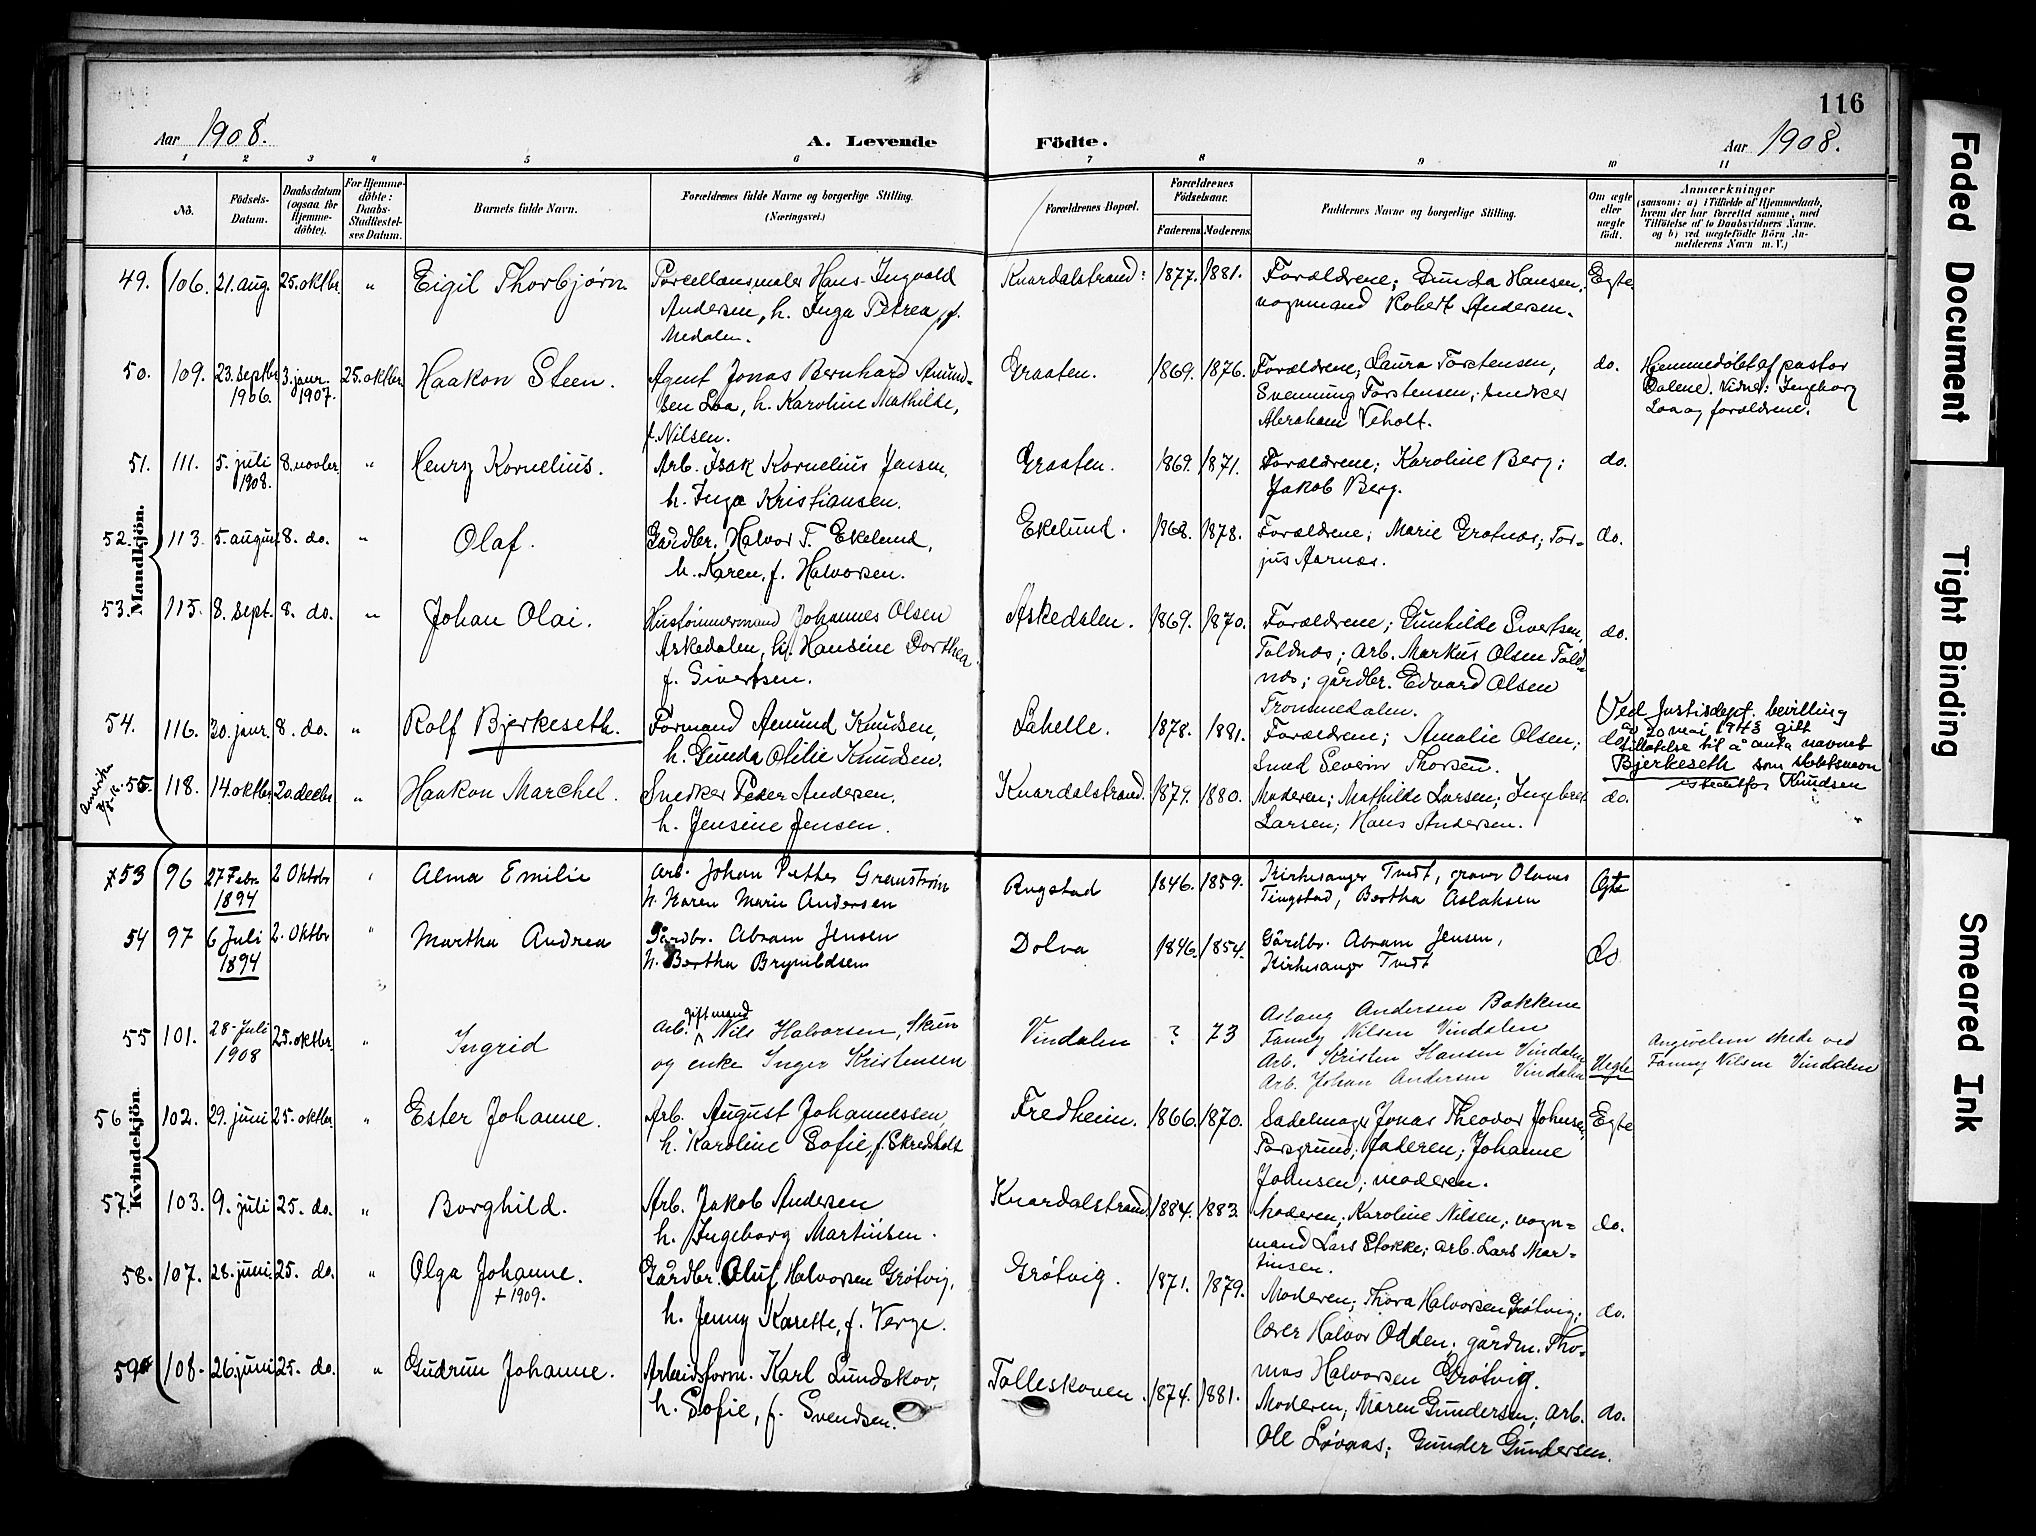 116
Aar 1908.
A. Levende
Födte.
Aar 1908.
1 2 3 4 5 6 7 8 9 10 11
No.
Födsels-Datum.
Daabsdatum (ogsaa for Hjemme-döbte).
For Hjemme-döbte: Daabs-Stadfæstel-ses Datum.
Barnets fulde Navn.
Forældrenes fulde Navne og borgerlige Stilling. (Næringsvei.)
Forældrenes Bopæl.
Forældrenes Födselsaar.
Faderens Moderens
Faddernes Navne og borgerlige Stilling.
Om ægte eller uægte födt.
Anmærkninger
(saasom: a) i Tilfælde af Hjemmedaab, hvem der har forrettet samme, med Tilföielse af to Daabsvidners Navne. og b) ved uægtefödte Börn An-melderens Navn m. V.)
Mandkjön.
49. 106. 21. aug. 25. oktbr. " Eigil Thorbjørn Porcellansmaler Hans Ingvald Knardalstrand: 1877. 1881. Forældrene; Gunda Hansen, Egte.
Andersen, h. Inga Petrea, f. vognmand Robert Andersen.
Medalen.
50. 109. 23. septbr. 3. janr. 25. oktbr. Haakon Steen. Agent Jonas Bernhard Amund- Graaten. 1869. 1876. Forældrene; Laura Torstensen, do. Hjemmedøbt af pastor
1906. 1907. sen Laa, h. Karoline Mathilde, Svenning Torstensen, snedker Dalene. Vidner: Ingeborg
f. Nilsen. Abraham Veholt. Laa og forældrene.
51. 111. 5. juli 8. novbr. " Henry Kornelius. Arb. Isak Kornelius Jensen, Graaten. 1869. 1871. Forældrene; Karoline Berg; do.
1908. h. Inga Kristiansen. Jakob Berg.
52. 113. 5. august 8. do. " Olaf. Gårdbr. Halvor T. Ekelund, Ekelund. 1868. 1878. Forældrene; Marie Grotnæs; Tor- do.
h. Karen, f. Halvorsen. jus Aarnæs.
53. 115. 8. sept. 8. do. " Johan Olai. Hustømmermand Johannes Olsen Askedalen. 1869. 1870. Forældrene; Gunhilde Sivertsen, do.
Askedalen, h. Hansine Dorthea Toldnæs; arb. Markus Olsen Told-
f. Sivertsen. næs; gårdbr. Edvard Olsen
Trommedalen.
54. 116. 30. janr. 8. do. " Rolf Bjerkeseth. Formand Amund Knudsen, Lahelle. 1878. 1881. Forældrene; Amalie Olsen; do. Ved Justisdept. bevilling
h. Gunda Otilie Knudsen. Smed Severin Thorsen. av 20 mai 1943 gitt
tillatelse til å anta navnet
Bjerkeseth som slektsnavn
istedetfor Knudsen
Amerika
55. 118. 14. oktbr. 20. decbr. " Haakon Marchel. Snedker Peder Andersen, Knardalstrand. 1877. 1880. Moderen; Mathilde Larsen; Ingebret do.
h. Jensine Jensen. Larsen; Hans Andersen.
Kvindekjön.
53 96 27 Febr 2 Oktobr " Alma Emilie Arb. Johan Petter Grenstrøm Rugstad 1846. 1859. Kirkesanger Tvedt, graver Olaves Ægte
1894 h. Karen Marie Andersen Tingstad, Bertha Aslaksen
54 97 6 Juli 2. Oktbr " Martha Andrea Gårdbr. Abram Jensen Dolva 1846. 1854. Gårdbr. Abram Jensen, Do
1894 h. Bertha Brynildsen Kirkesanger Tvedt
55 101. 28-Juli 25. oktbr. " Ingrid Arb. gift mand Nils Halvorsen, Skien Vindalen ? 73 Aslaug Andersen Bakkene
1908 og enke Inger Kristensen Fanny Nilsen Vindalen
Arb. Kristen Hansen Vindalen Uegte Angivelsen skede ved
Arb. Johan Andersen Vindalen Fanny Nilsen Vindalen
56 102. 29. juni 25. oktbr. " Ester Johanne. Arb. August Johannessen, Fredheim. 1866. 1870. Sadelmager Jonas Theodor Johnsen, Egte
h. Karoline Sofie, f. Skredholt Porsgrund; faderen; Johanne
Johnsen; moderen.
57. 103. 9. juli 25. do. " Borghild. Arb. Jakob Andersen Knardalstrand. 1884. 1883. Moderen; Karoline Nilsen; vogn- do.
h. Ingeborg Martinsen. mand Lars Stokke; arb. Lars Mar-
tinsen.
58. 107. 28. juni. 25. do. " Olga Johanne. Gårdbr. Oluf Halvorsen Grøtvig, Grøtvig. 1871. 1879. Moderen; Thora Halvorsen Grøtvig; do.
+ 1909. h. Jenny Karette, f. Verge. lærer Halvor Odden; gårdm. Tho-
mas Halvorsen Grøtvig.
59 108. 26. juni 25. do. " Gudrun Johanne. Arbeidsform. Karl Lundskov, Tolleskoven. 1874. 1881. Moderen; Maren Gundersen; arb. do.
h. Sofie, f. Svendsen. Ole Løvaas; Gunder Gundersen.
Faded Document
Tight Binding
Smeared Ink